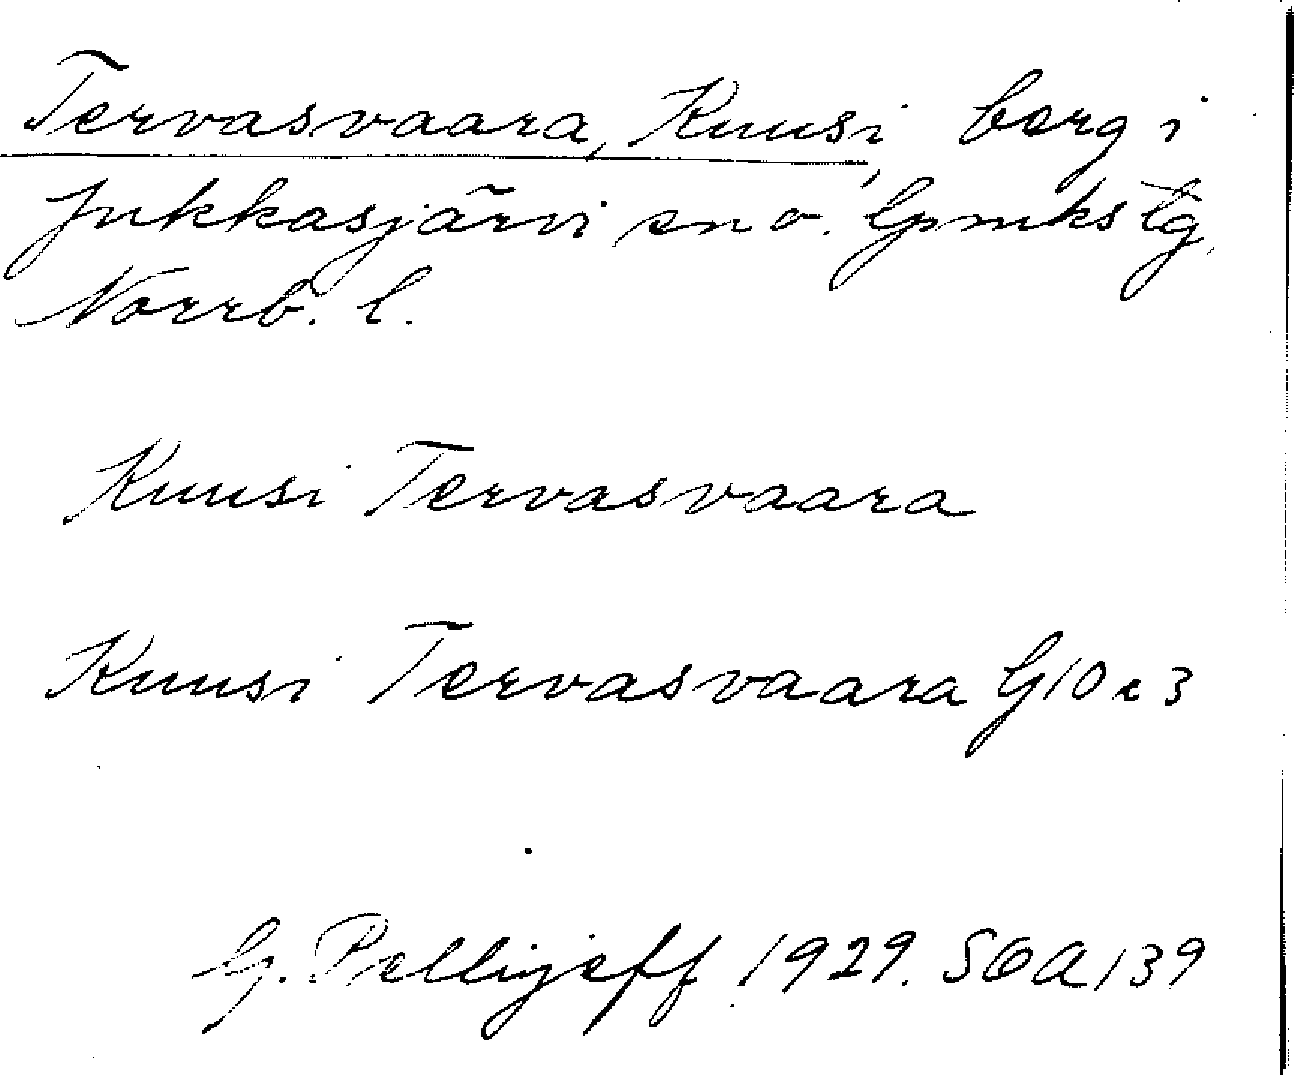 Tervasvaara, Kuusi, berg i
Jukkasjärvi sn o. Gmks tg,
Norrb. l.
Kuusi Tervasvaara
Kuusi Tervasvaara G10 c 3
G. Pellijeff 1929. SOA 139